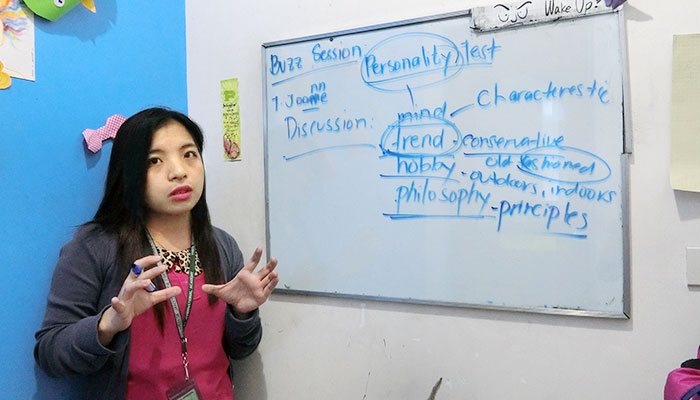 Wake Up!
Buzz Session Personality Test
1. Joanne
nn
mind characterestic
Discussion:
trend - conservative
old fashioned
hobby - outdoors, indoors
philosophy - principles